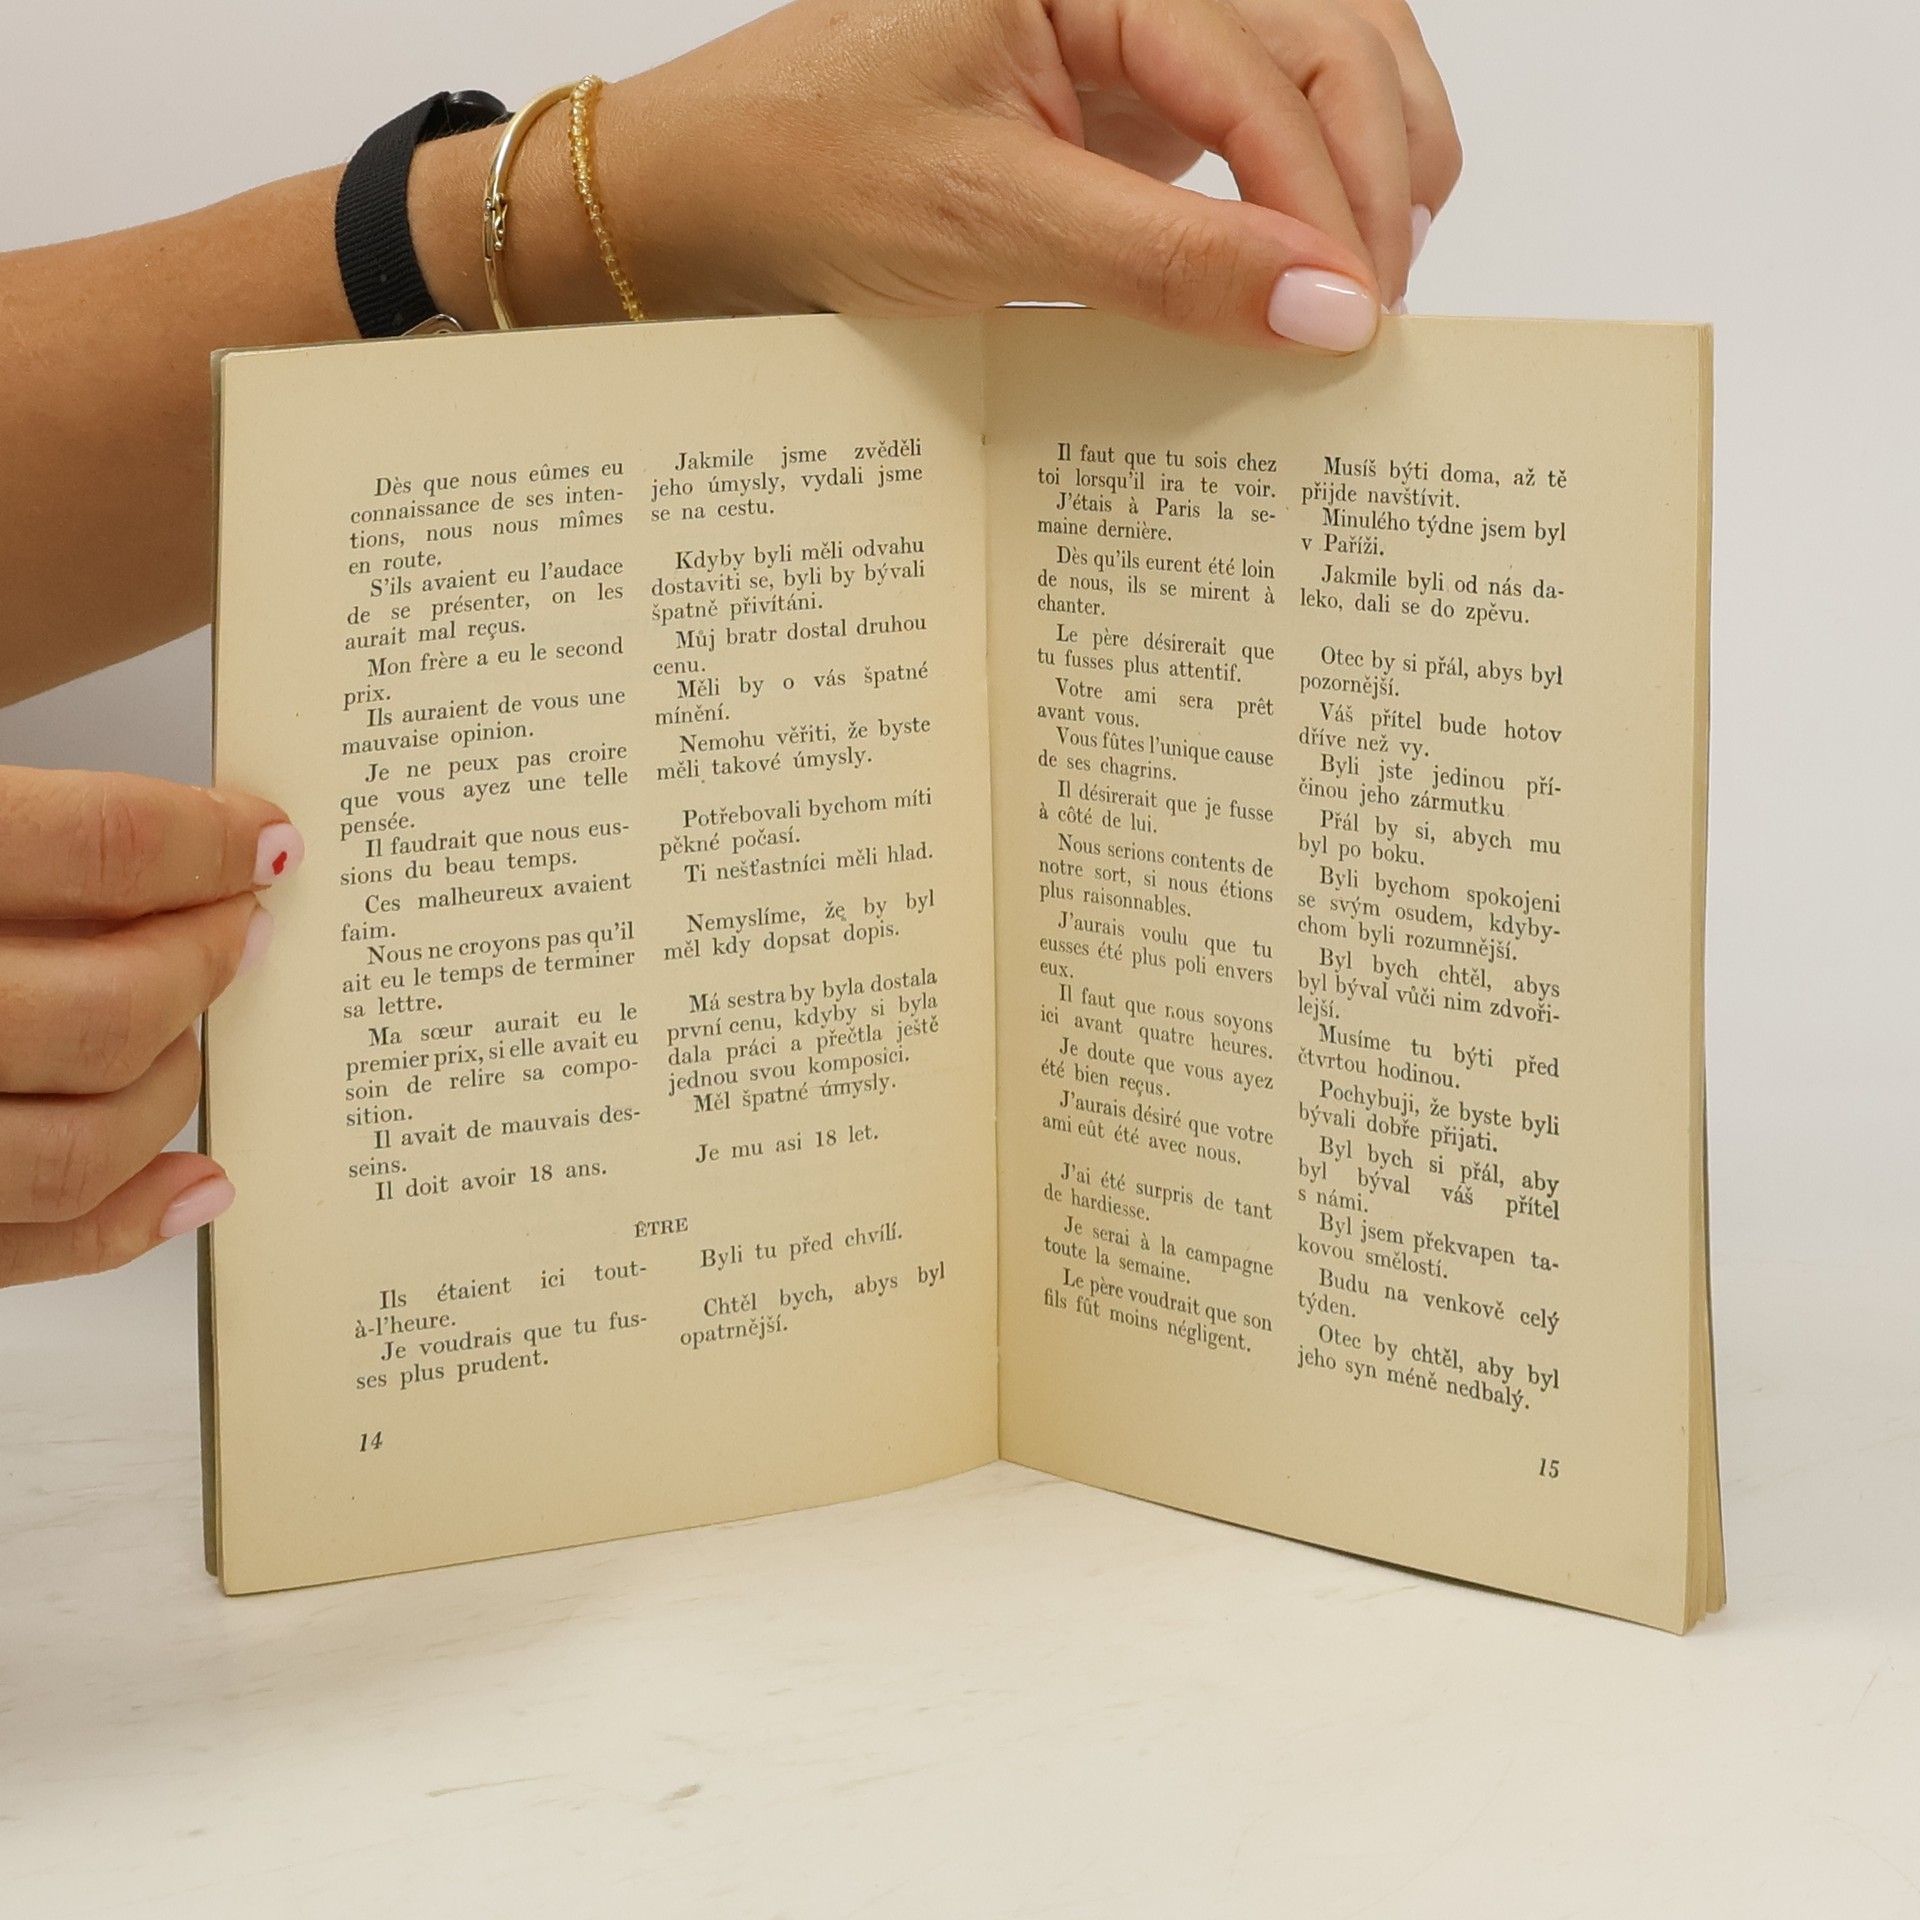 Dès que nous eûmes eu
connaissance de ses inten-
tions, nous nous mîmes
en route.
S'ils avaient eu l'audace
de se présenter, on les
aurait mal reçus.
Mon frère a eu le second
prix.
Ils auraient de vous une
mauvaise opinion.
Je ne peux pas croire
que vous ayez une telle
pensée.
Il faudrait que nous eus-
sions du beau temps.
Ces malheureux avaient
faim.
Nous ne croyons pas qu'il
ait eu le temps de terminer
sa lettre.
Ma sœur aurait eu le
premier prix, si elle avait eu
soin de relire sa compo-
sition.
Il avait de mauvais des-
seins.
Il doit avoir 18 ans.
Jakmile jsme zvěděli
jeho úmysly, vydali jsme
se na cestu.
Kdyby byli měli odvahu
dostaviti se, byli by bývali
špatně přivítáni.
Můj bratr dostal druhou
cenu.
Měli by o vás špatné
mínění.
Nemohu věřiti, že byste
měli takové úmysly.
Potřebovali bychom míti
pěkné počasí.
Ti nešťastníci měli hlad.
Nemyslíme, že by byl
měl kdy dopsat dopis.
Má sestra by byla dostala
první cenu, kdyby si byla
dala práci a přečtla ještě
jednou svou komposici.
Měl špatné úmysly.
Je mu asi 18 let.
ÊTRE
Ils étaient ici tout-
à-l'heure.
Je voudrais que tu fus-
ses plus prudent.
Byli tu před chvílí.
Chtěl bych, abys byl
opatrnější.
14
Il faut que tu sois chez
toi lorsqu'il ira te voir.
J'étais à Paris la se-
maine dernière.
Dès qu'ils eurent été loin
de nous, ils se mirent à
chanter.
Le père désirerait que
tu fusses plus attentif.
Votre ami sera prêt
avant vous.
Vous fûtes l'unique cause
de ses chagrins.
Il désirerait que je fusse
à côté de lui.
Nous serions contents de
notre sort, si nous étions
plus raisonnables.
J'aurais voulu que tu
eusses été plus poli envers
eux.
Il faut que nous soyons
ici avant quatre heures.
Je doute que vous ayez
été bien reçus.
J'aurais désiré que votre
ami eût été avec nous.
J'ai été surpris de tant
de hardiesse.
Je serai à la campagne
toute la semaine.
Le père voudrait que son
fils fût moins négligent.
Musíš býti doma, až tě
přijde navštívit.
Minulého týdne jsem byl
v Paříži.
Jakmile byli od nás da-
leko, dali se do zpěvu.
Otec by si přál, abys byl
pozornější.
Váš přítel bude hotov
dříve než vy.
Byli jste jedinou pří-
činou jeho zármutku
Přál by si, abych mu
byl po boku.
Byli bychom spokojeni
se svým osudem, kdyby-
chom byli rozumnější.
Byl bych chtěl, abys
byl býval vůči nim zdvoři-
lejší.
Musíme tu býti před
čtvrtou hodinou.
Pochybuji, že byste byli
bývali dobře přijati.
Byl bych si přál, aby
byl býval váš přítel
s námi.
Byl jsem překvapen ta-
kovou smělostí.
Budu na venkově celý
týden.
Otec by chtěl, aby byl
jeho syn méně nedbalý.
15